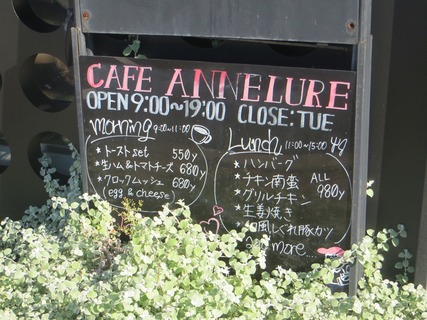 CAFE ANNELURE
OPEN 9:00~19:00 CLOSE:TUE
morning 9:00~11:00
* トースト set 550y
* 生ハム&トマトチーズ 680y
* クロックムッシュ 680y
(egg & cheese)
Lunch 11:00~15:00
* ハンバーグ
* チキン南蛮 ALL
* グリルチキン 980y
* 生姜焼き
風しぐれ豚カツ
more....